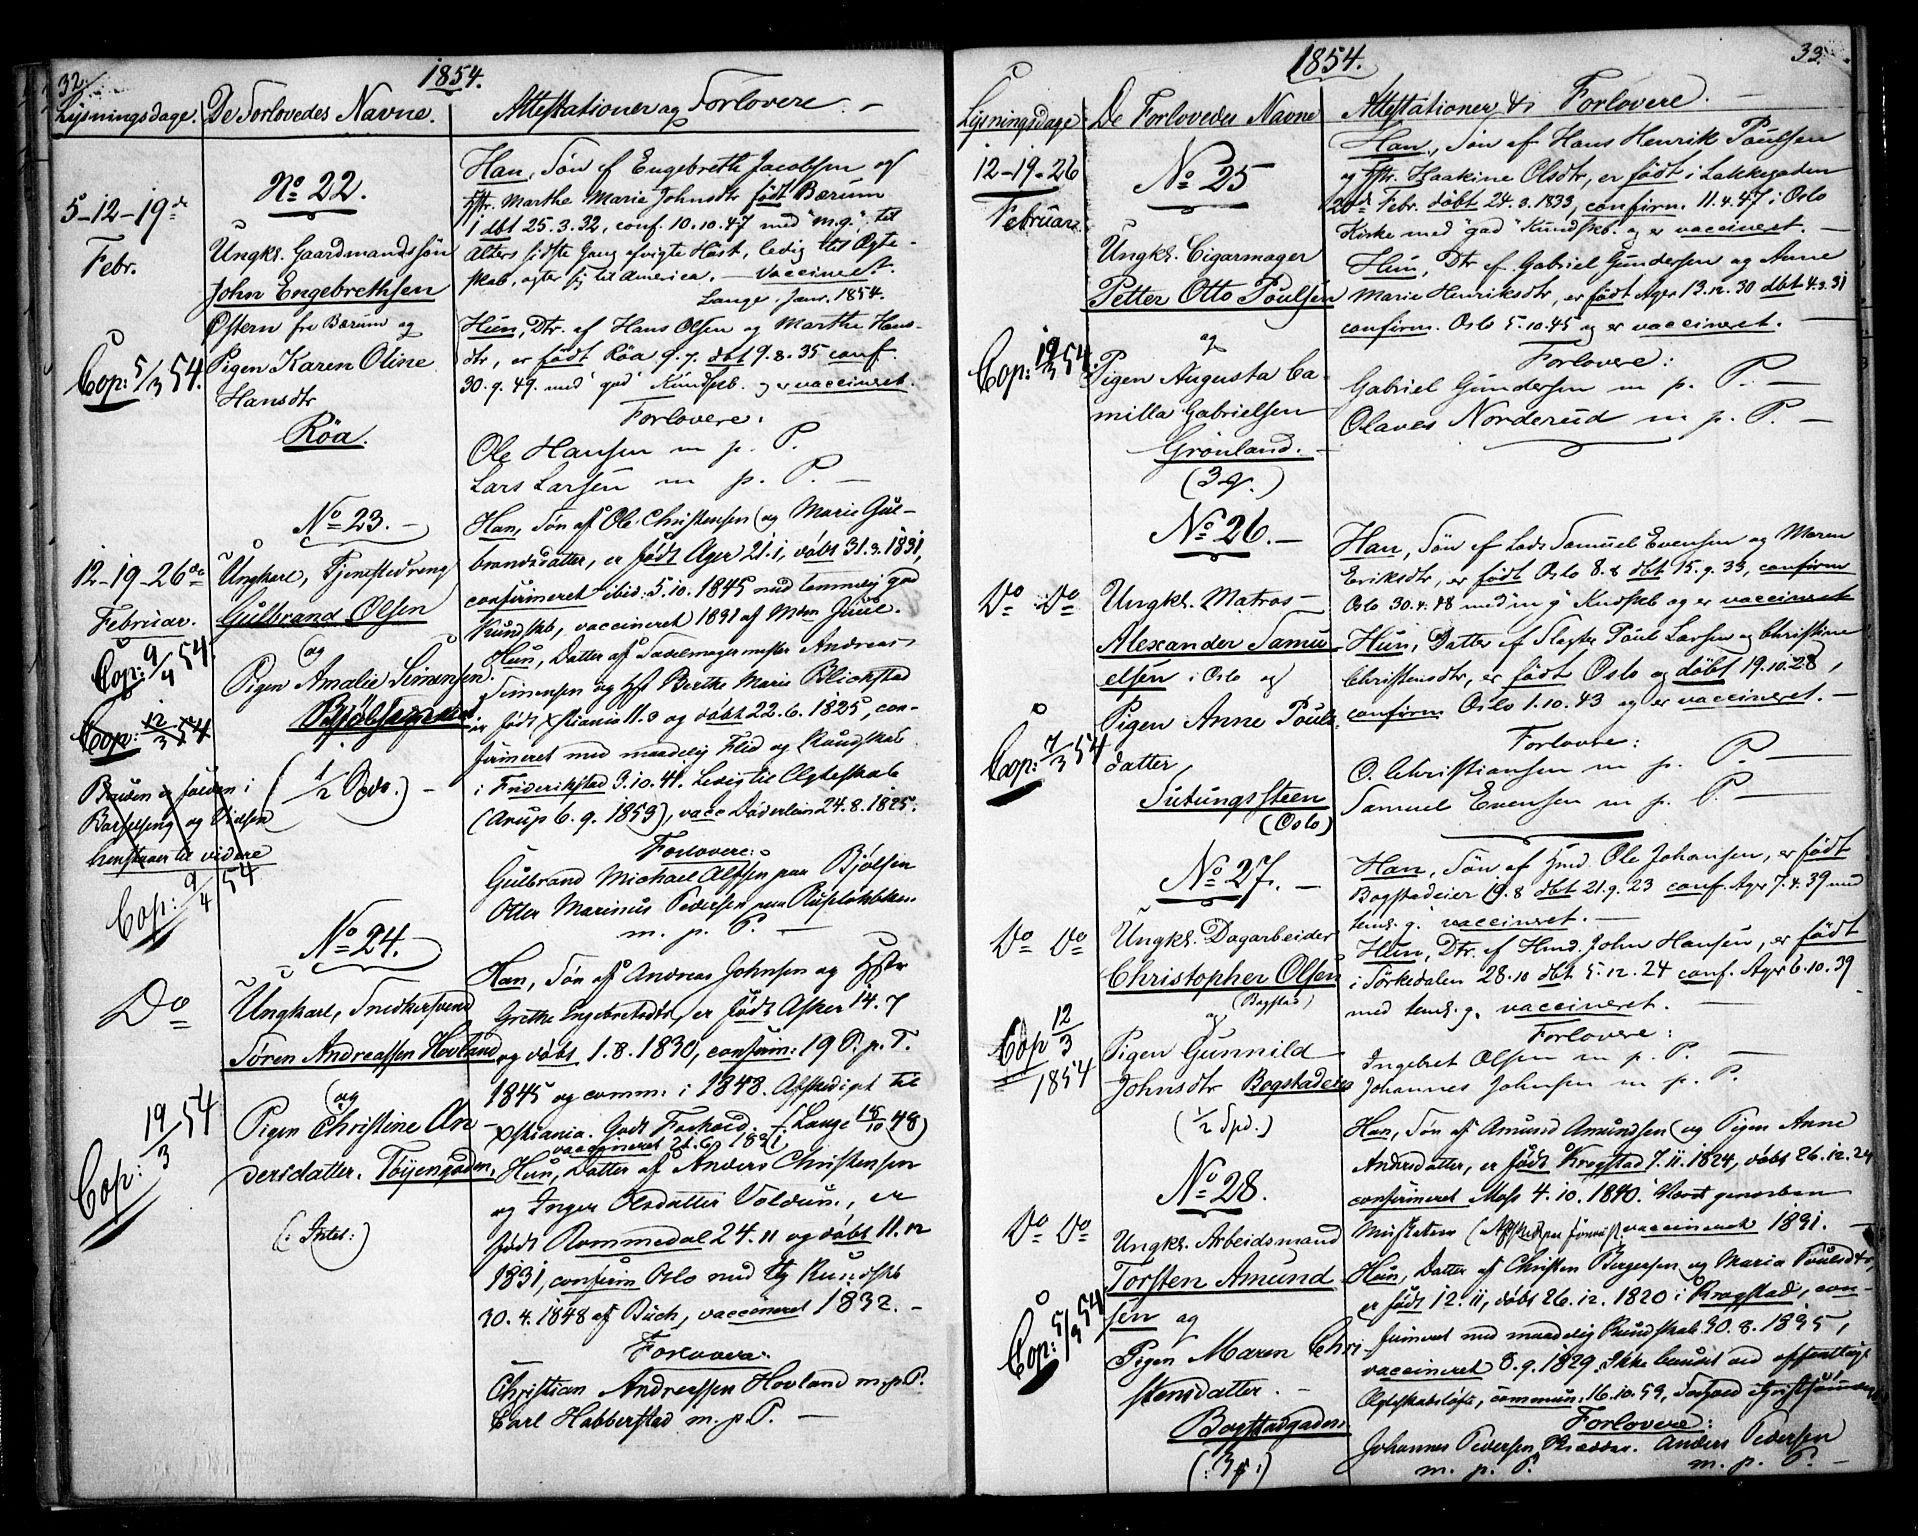 32.
1854.
Lysningsdage. De Forlovedes Navne. Attestationer og Forlovere. —
5-12-19de
Febr.
Cop: 5/3 54.
No 22.
Ungk. Gaardmandssøn
John Engebrethsen
Østern fra Bærum og
Pigen Karen Oline
Hansdtr
Røa.
Han, Søn af Engebreth Jacobsen og
Hstr. Marthe Marie Johnsdtr født Bærum
1 dbt 25.3.32, conf. 10.10.47 med "m.g." til
Alters sidste Gang afvigte Høst, ledig til Ægte-
skab, agter sig til America. — vaccineret.
Lange. Janr. 1854.
Hun, Dtr. af Hans Olsen og Marthe Hans-
dtr, er født Røa 9.7. dbt 9.8.35 conf.
30.9.49. med "god" Kundskb. og er vaccineret.
Forlovere:
Ole Hansen m. p. P.
Lars Larsen m. p. P. —
12-19-26de
Februar.
Cop: 9/4 54.
Cop: 12/3 54
henstaaer til videre
Cop: 9/4 54
No 23. —
Ungkarl, Tjenestedreng
Gulbrand Olsen
og
Pigen Amalie Simensen.
(1/2 Spd.) —
Han, Søn af Ole Christensen og Marie Gul-
brandsdatter, er født Ager 21.1, døbt 31.3.1831,
confirmeret ibid. 5.10.1845 med temmelig god
Kundskb, vaccineret 1831 af Mdm Juul.
Hun, Datter af Sadelmagermester Andreas
Simensen og Hst Berthe Marie Blichstad
er født Xstiania 11.3 og døbt 22.6.1825, con-
firmeret med maadelig Flid og Kundskab
i Friderikstad 3.10.41. Ledig til Ægteskab
(Arup 6.9.1853), vacc Døderlein 24.8.1825.
Forlovere:
Gulbrand Michael Olsen paa Bjølsen
Otter Marinus Pedersen paa
m. p. P. —
Do
Cop: 19/3 54
No 24.
Ungkarl, Snedkersvend
Søren Andreassen Hovland
og
Pigen Christine An-
dersdatter. Tøyengaden.
(: Intet :)
Han, Søn af Andreas Johnsen og Hstr
Grethe Engebretsdtr, er født Asker 14.7
og døbt 1.8.1830, confirm: 19 S. p. T.
1845 og comm: i 1848. Afskediget til
Xstiania. Godt Forhold. (Lange 18/10 48)
vaccineret 21.6.1831
Hun, Datter af Anders Christensen
og Inger Olsdatter Voldum, er
født Rommedal 24.11 og døbt 11.12
1831, confirm Oslo med tg Kundskb
30.4.1848 af Buch, vaccineret 1832. —
Forlovere:
Christian Andreassen Hovland m. p. P.
Carl Habberstad m. p. P. —
1854.
33.
Lysningsdage De Forlovedes Navne Attestationer & Forlovere. —
12-19-26
Februar.
Cop: 19/3 54.
No 25
Ungk. Cigarmager
Petter Otto Poulsen
og
Pigen Augusta Ca-
milla Gabrielsen
Grønland. —
(3 )
Han, Søn af Hans Henrik Poulsen
og Hstr. Haakine Olsdtr, er født i Lakkegaden
20de Febr. døbt 24.3.1833, confirm. 11.4.47 i Oslo
Kirke med "god" Kundskb. og er vaccineret. —
Hun, Dtr af Gabriel Gundersen og Anne
Marie Henriksdtr, er født Ager 13.12.30 dbt 4.3.31
confirm. Oslo 5.10.45 og er vaccineret. —
Forlovere:
Gabriel Gundersen m. p. P. —
Olaves Norderud m. p. P. —
Do Do
Cop: 7/3 54
No 26. —
Ungk. Matros
Alexander Samu-
elsen i Oslo og
Pigen Anne Pouls-
datter
Sutungssteen
(Oslo)
Han, Søn af Lods Samuel Evensen og Maren
Eriksdtr, er født Oslo 8.8 dbt 15.9.33, confirm
Oslo 30.4.48 med "mg" Kundskb og er vaccineret
Hun, Datter af Slagter Poul Larsen og Christine
Christensdtr, er født Oslo og døbt 19.10.28,
confirm Oslo 1.10.43 og er vaccineret. —
Forlovere:
O. Christiansen m. p. P. —
Samuel Evensen m. p. P. —
Do Do
Cop 12/3
1854
No 27. —
Ungk. Dagarbeider
Christopher Olsen
(Bogstad)
og
Pigen Gunnild
Johnsdtr Bogstadeier
(1/2 Spd.)
Han, Søn af Hmd. Ole Johansen, er født
Bogstadeier 19.8 dbt 21.9.23 conf. Ager 7.4.39 med
teml. g. vaccineret. —
Hun, Dtr. af Hmd. John Hansen, er født
i Sørkedalen 28.10 dbt 5.12.24 conf. Ager 6.10.39
med teml. g. vaccineret. —
Forlovere:
Ingebret Olsen m. p. P. —
Johannes Johnsen m. p. P.
Do Do
Cop: 5/3 54
No 28.
Ungk. Arbeidsmand
Torsten Amund-
sen og
Pigen Maren Chri-
stensdatter. —
Bogstadgaden.
Han, Søn af Amund Amundsen og Pigen Anne
Andersdatter, er født Krogstad 7.11.1824, døbt 26.12.24
confirmeret Moss 4.10.1840. Navnt gevorben
Musketeer vaccineret 1831. —
Hun, Datter af Christen Bergersen og Maria Poulsdtr,
er født 12.11, døbt 26.12.1820 i Krogstad, con-
firmeret med maadelig Kundskab 30.8.1835,
vaccineret 3.9.1829. Ikke bundet ved offentligt
Ægteskabsløfte, commun: 16.10.53,
Forlovere:
Johannes Pedersen, Skrædder. Anders Pedersen
m. p. P. m. p. P. —